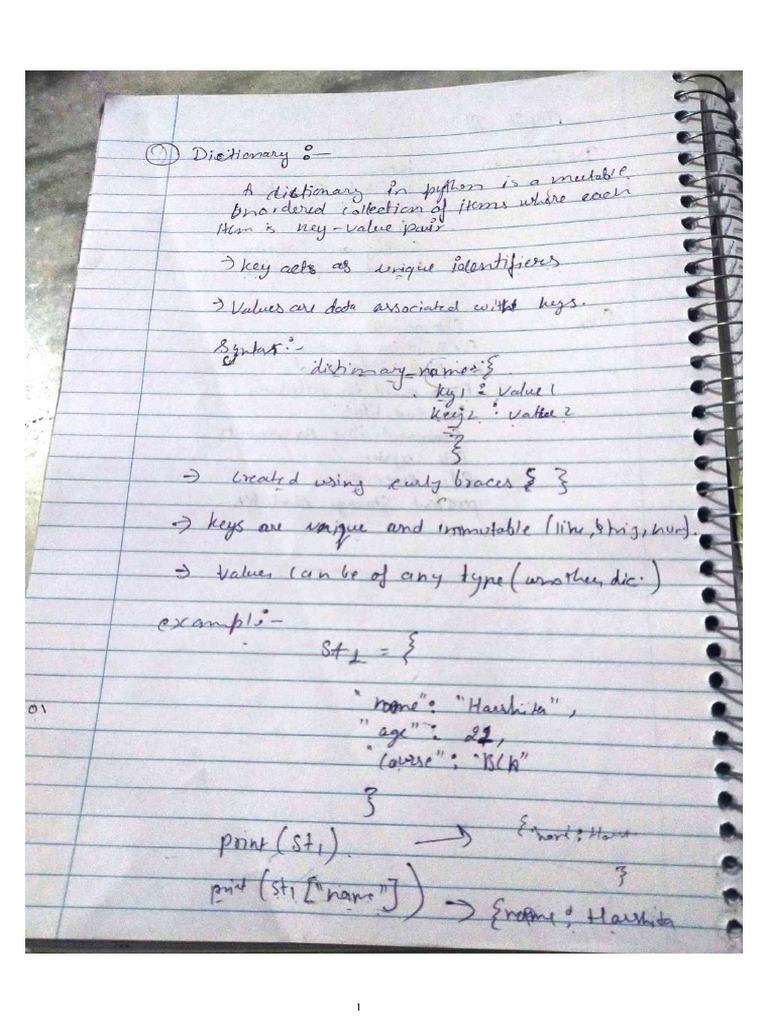 9 Dictionary :-
A dictionary in python is a mutable
unordered collection of items where each
item is key-value pair
→ key acts as unique identifiers
→ Values are data associated with keys.
Syntax:-
dictionary_name = {
key1 : value1
key2 : value 2
}
→ created using curly braces { }
→ keys are unique and immutable (like, string, num).
→ values can be of any type (another dic.)
exampl:-
St1 = {
"name": "Harshita",
"age": 21,
"Course": "BCA"
}
01
print(St1) → { name : Hars
}
print (St1 ["name"]) → {name : Harshita
1